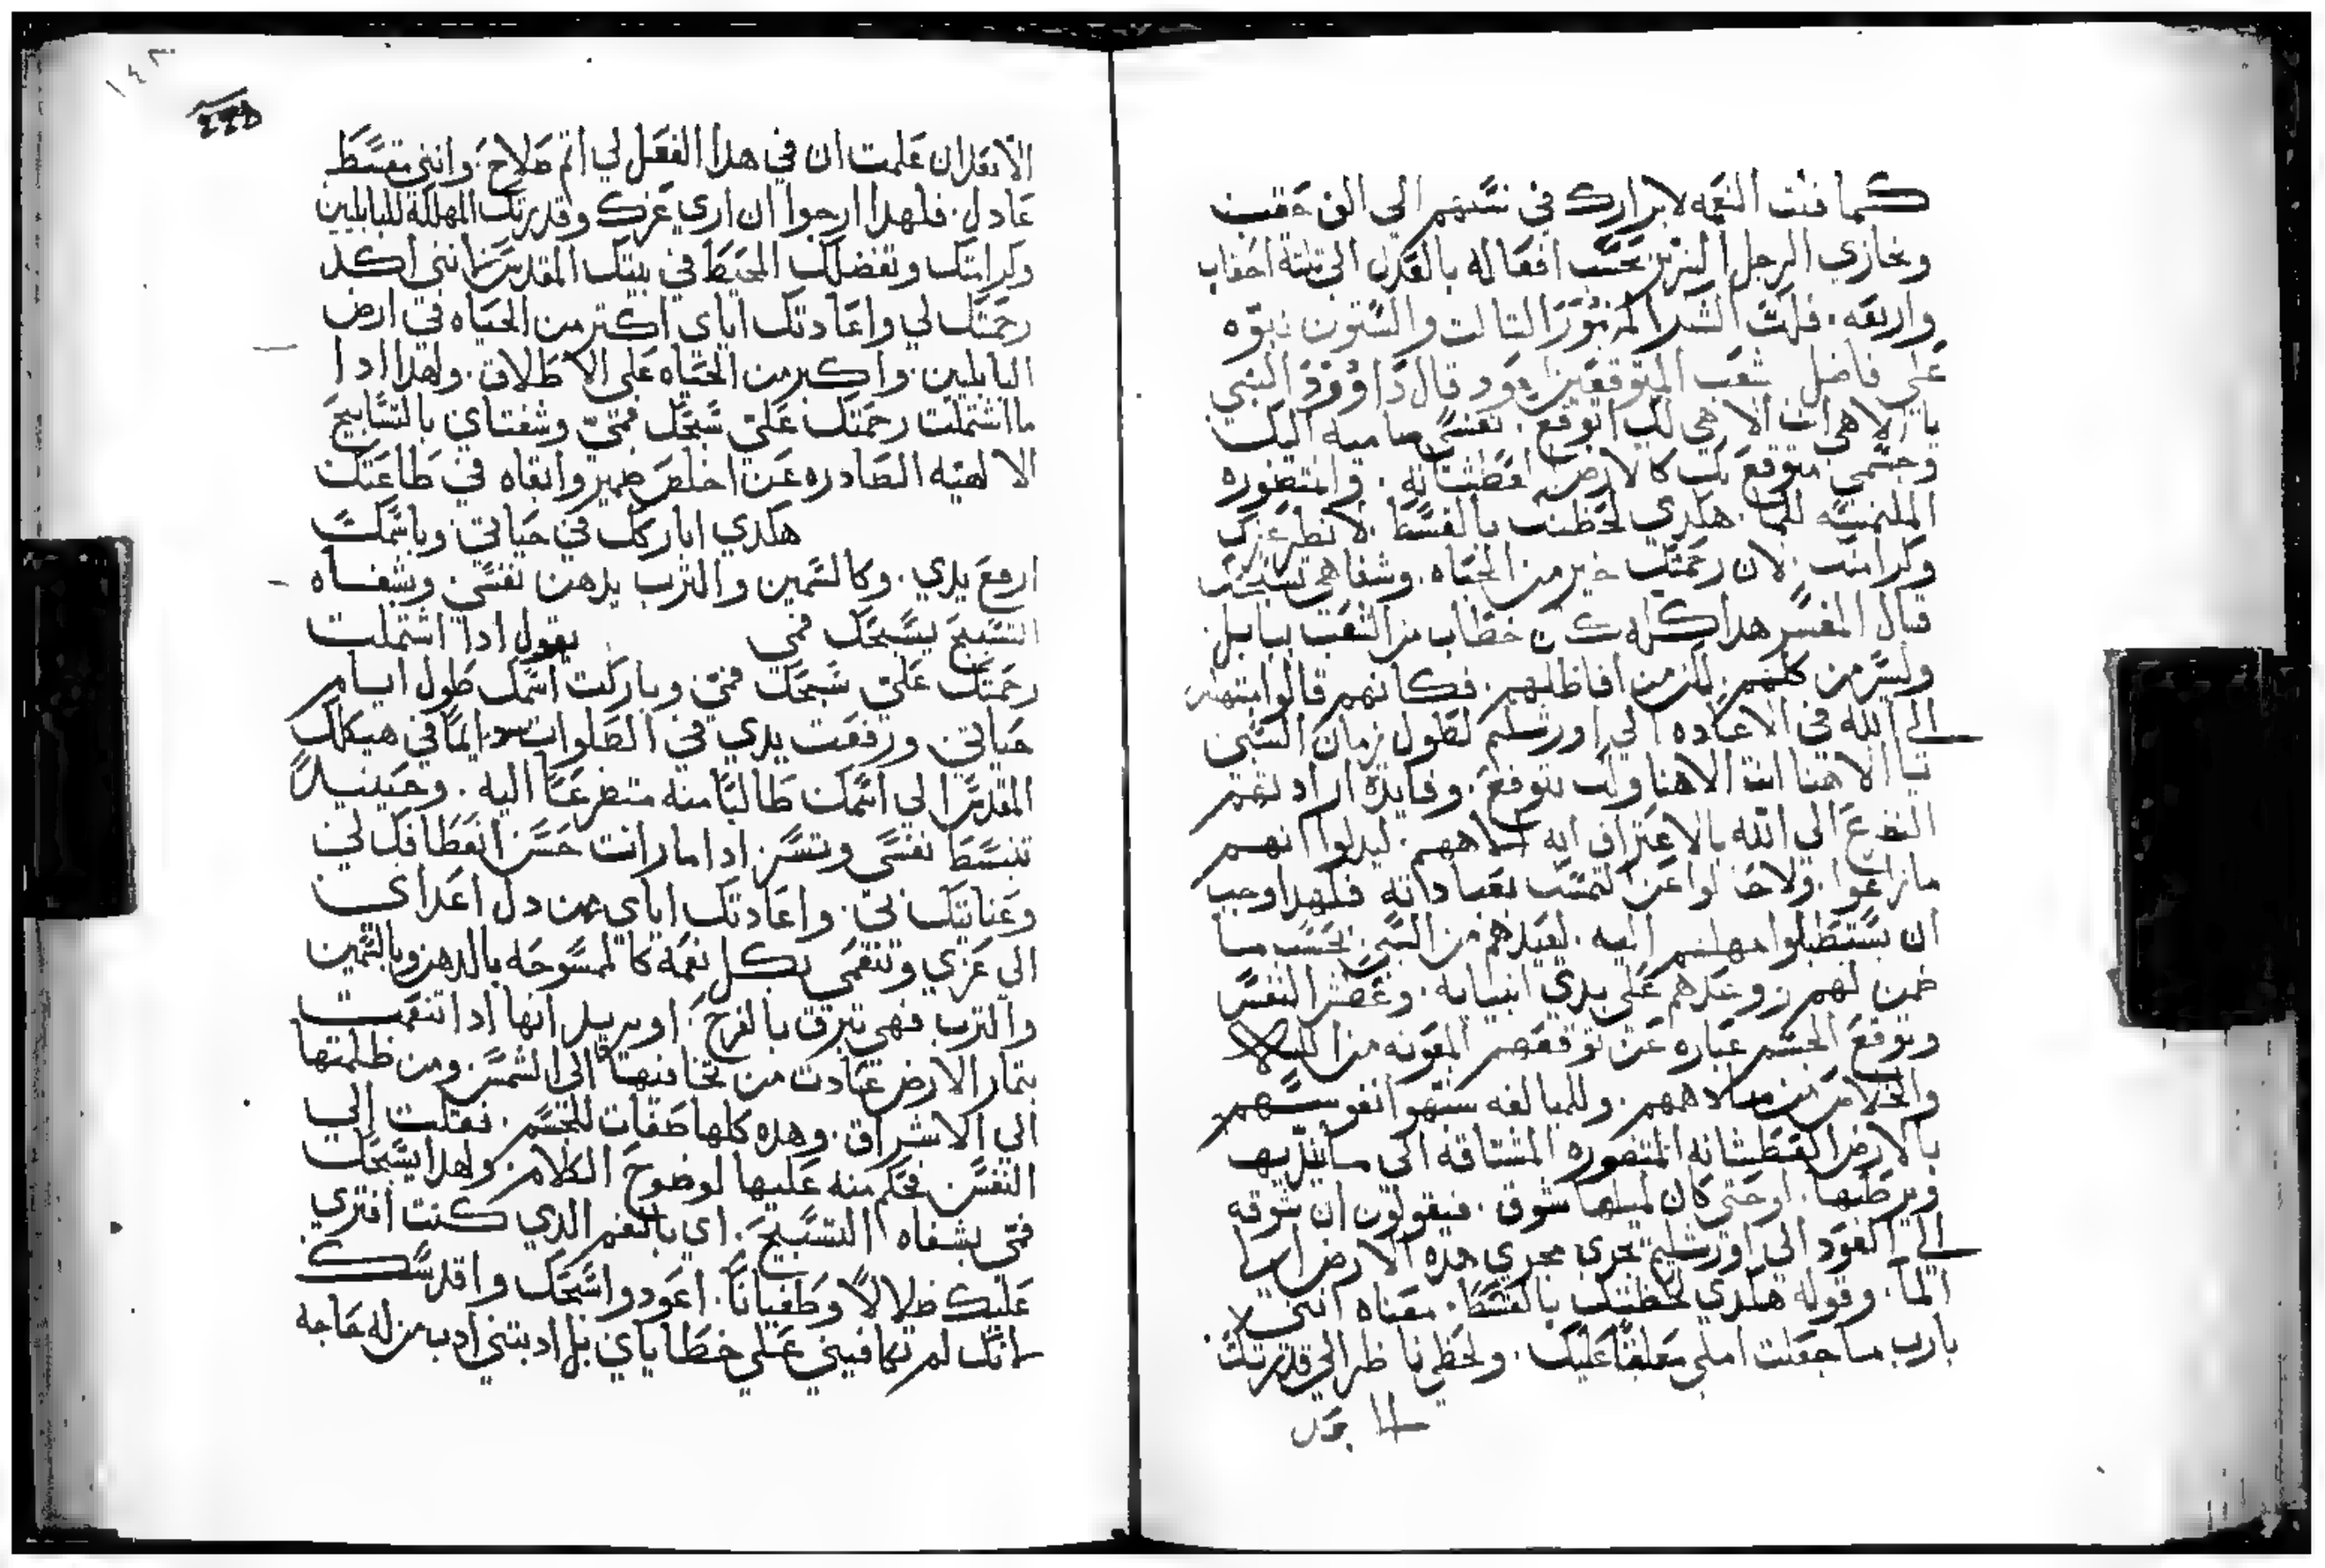 كما فنت النعمه لابرارك في نسلهم الي الف حقب
ويجازي الرجل الشرير بحسب افعاله بالعدل الي تلتة احقاب
واربعه. المزمور التالت والستون نبوه
علي فاضل شعب المتوقعين العود قال داوود النبي
يا الاهي انت الاهي لك اتوقع. نفسي ضاميه اليك
وجسمي متوقع لك كالارض العطشانه. والمتضوره
الملتمسه للما. هكدي لحظتك بالقسط. لانظر عزك
وكرامتك. لان رحمتك خير من الحياه. وشفاهي تسبحك
قال المفسر هدا كله خطاب من الشعب ببابل
وليس من كلهم. لكن من افاظلهم. فكانهم قالوا
الي الله في الاعاده الي اورشليم لطول زمان السبي
يا الاهنا انت الاهنا ولك نتوقع. وفايدة ارادتهم
التضرع الي الله بالاعتراف انه الاههم. ليدلوا انهم
مازاغوا. ولا حالوا عن التمسك بعباداته فلهدا وجب
ان يستبطلوا مهلتهم اليه. ليعيدهم من السبي بحسب ما
ضمن لهم ووعدهم علي يدي انبيايه. وعطش النفس
وتوقع الجسم عباره عن توقعهم المعونه من البلا
والخلاص من الاههم. وللمبالغه شبهوا نفوسهم
بالارض العطشانه المتضوره المشتاقه الي ما ينديها
ويرطبها. اوحتي كان لمثلها شوق. فيقولون ان شوقه
الي العود الي اورشليم تجري مجري هده الارض الي
الما. وقوله هكدي لحظتك بالقسط. معناه انني لا
يارب ما جعلت املي معلقا عليك. ولحظي ناظر الي قدرتك
الا بعد
١٤٣
الا بعد ان علمت ان في هدا الفعل لي اتم صلاح. وانني مقسط
عادل. فلهدا ارجوا ان اري عزك وقدرتك المهلكه للبابليين
وكرامتك وتفضلك المحيط في بيتك المقدس انني اكد
رحمتك لي واعادتك اياي اكتر من الحياه في ارض
البابليين. واكبر من الحياه علي الاطلاق. ولهدا ادا
ما اشتملت رحمتك علي سبحك فمي وشفتاي بالتسابيح
الالهيه الصادره عن اخلص ضمير وانقاه في طاعتك
هكدي اباركك في حياتي وباسمك
ارفع يدي. وكالسمين والترب يدهن نفسي وبشفاه
التسبيح يسبحك فمي يقول ادا اشتملت
رحمتك علي سبحك فمي وباركت اسمك طول ايام
حياتي ورفعت يدي في الصلوات دايما في هيكلك
المقدس الي اسمك طالبا منه متضرعا اليه. وحينيد
تنبسط نفسي وتسر ادا ما رات حسن انعطافك لي
وعنايتك بي. واعادتك اياي من دل اعداي
الي عزي وتنعمي بكل نعمه كالممسوحه بالدهن وبالسمين
والترب فهي تبرق بالفرح. او يريد انها ادا تنعمت
بتمار الارض عادت من نحافتها الي السمن. ومن ظلمتها
الي الاشراق. وهده كلها صفات للجسم. فنقلت الي
النفس. فحكم منه عليها لوضوح الكلام. ولهدا يسبحك
فمي بشفاه التسبيح. اي بالفم الدي كنت افتري
عليك ضلالا وطغيانا. اعود واسبحك واقدسك
لانك لم تكافيني علي خطاياي بل ادبتني ادب من له حاجه